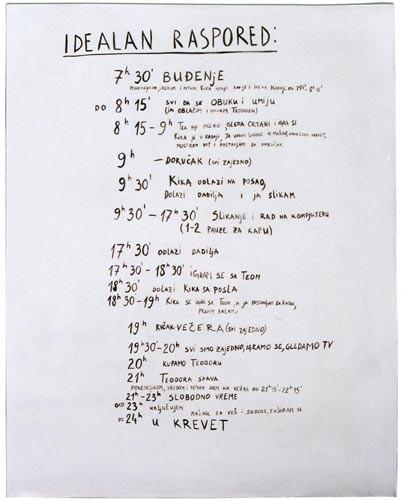 IDEALAN RASPORED:
7h 30' BUĐENJE
PONEDELJKOM, SREDOM I PETKOM KIKA
DO 8h 15' SVI DA SE OBUKU I UMIJU
(JA OBLAČIM I UMIVAM TEODORU)
8h 15 - 9h TEA MP MLEKO GLEDA CRTANI I IGRA SE
KIKA JE U KADI, JA
POSTELJEM I POSTAVLJAM ZA DORUČAK
9h - DORUČAK (SVI ZAJEDNO)
9h 30' KIKA ODLAZI NA POSAO,
DOLAZI DADILJA I JA SLIKAM
9h 30' - 17h 30' SLIKANJE I RAD NA KOMPJUTERU
(1-2 PAUZE ZA KAFU)
17h 30' ODLAZI DADILJA
17h 30' - 18h 30' IGRAM SE SA TEOM
18h 30' DOLAZI KIKA SA POSLA
18h 30 - 19h KIKA SE IGRA SA TEOM, A JA POSTAVLJAM ZA
PRAVIM SALATU
19h RUČAK VEČERA (SVI ZAJEDNO)
19h 30' - 20h SVI SMO ZAJEDNO, IGRAMO SE, GLEDAMO TV
20h KUPAMO TEODORU
21h TEODORA SPAVA
PONEDELJKOM, SREDOM I PETKOM IDEM NA VEŽBE OD 21h 15' - 22h 15'
21h - 23h SLOBODNO VREME
OKO 23h UKLJUČUJEM MAŠINU ZA VEŠ I SUDOVE, TUŠIRAM SE
DO 24h U KREVET